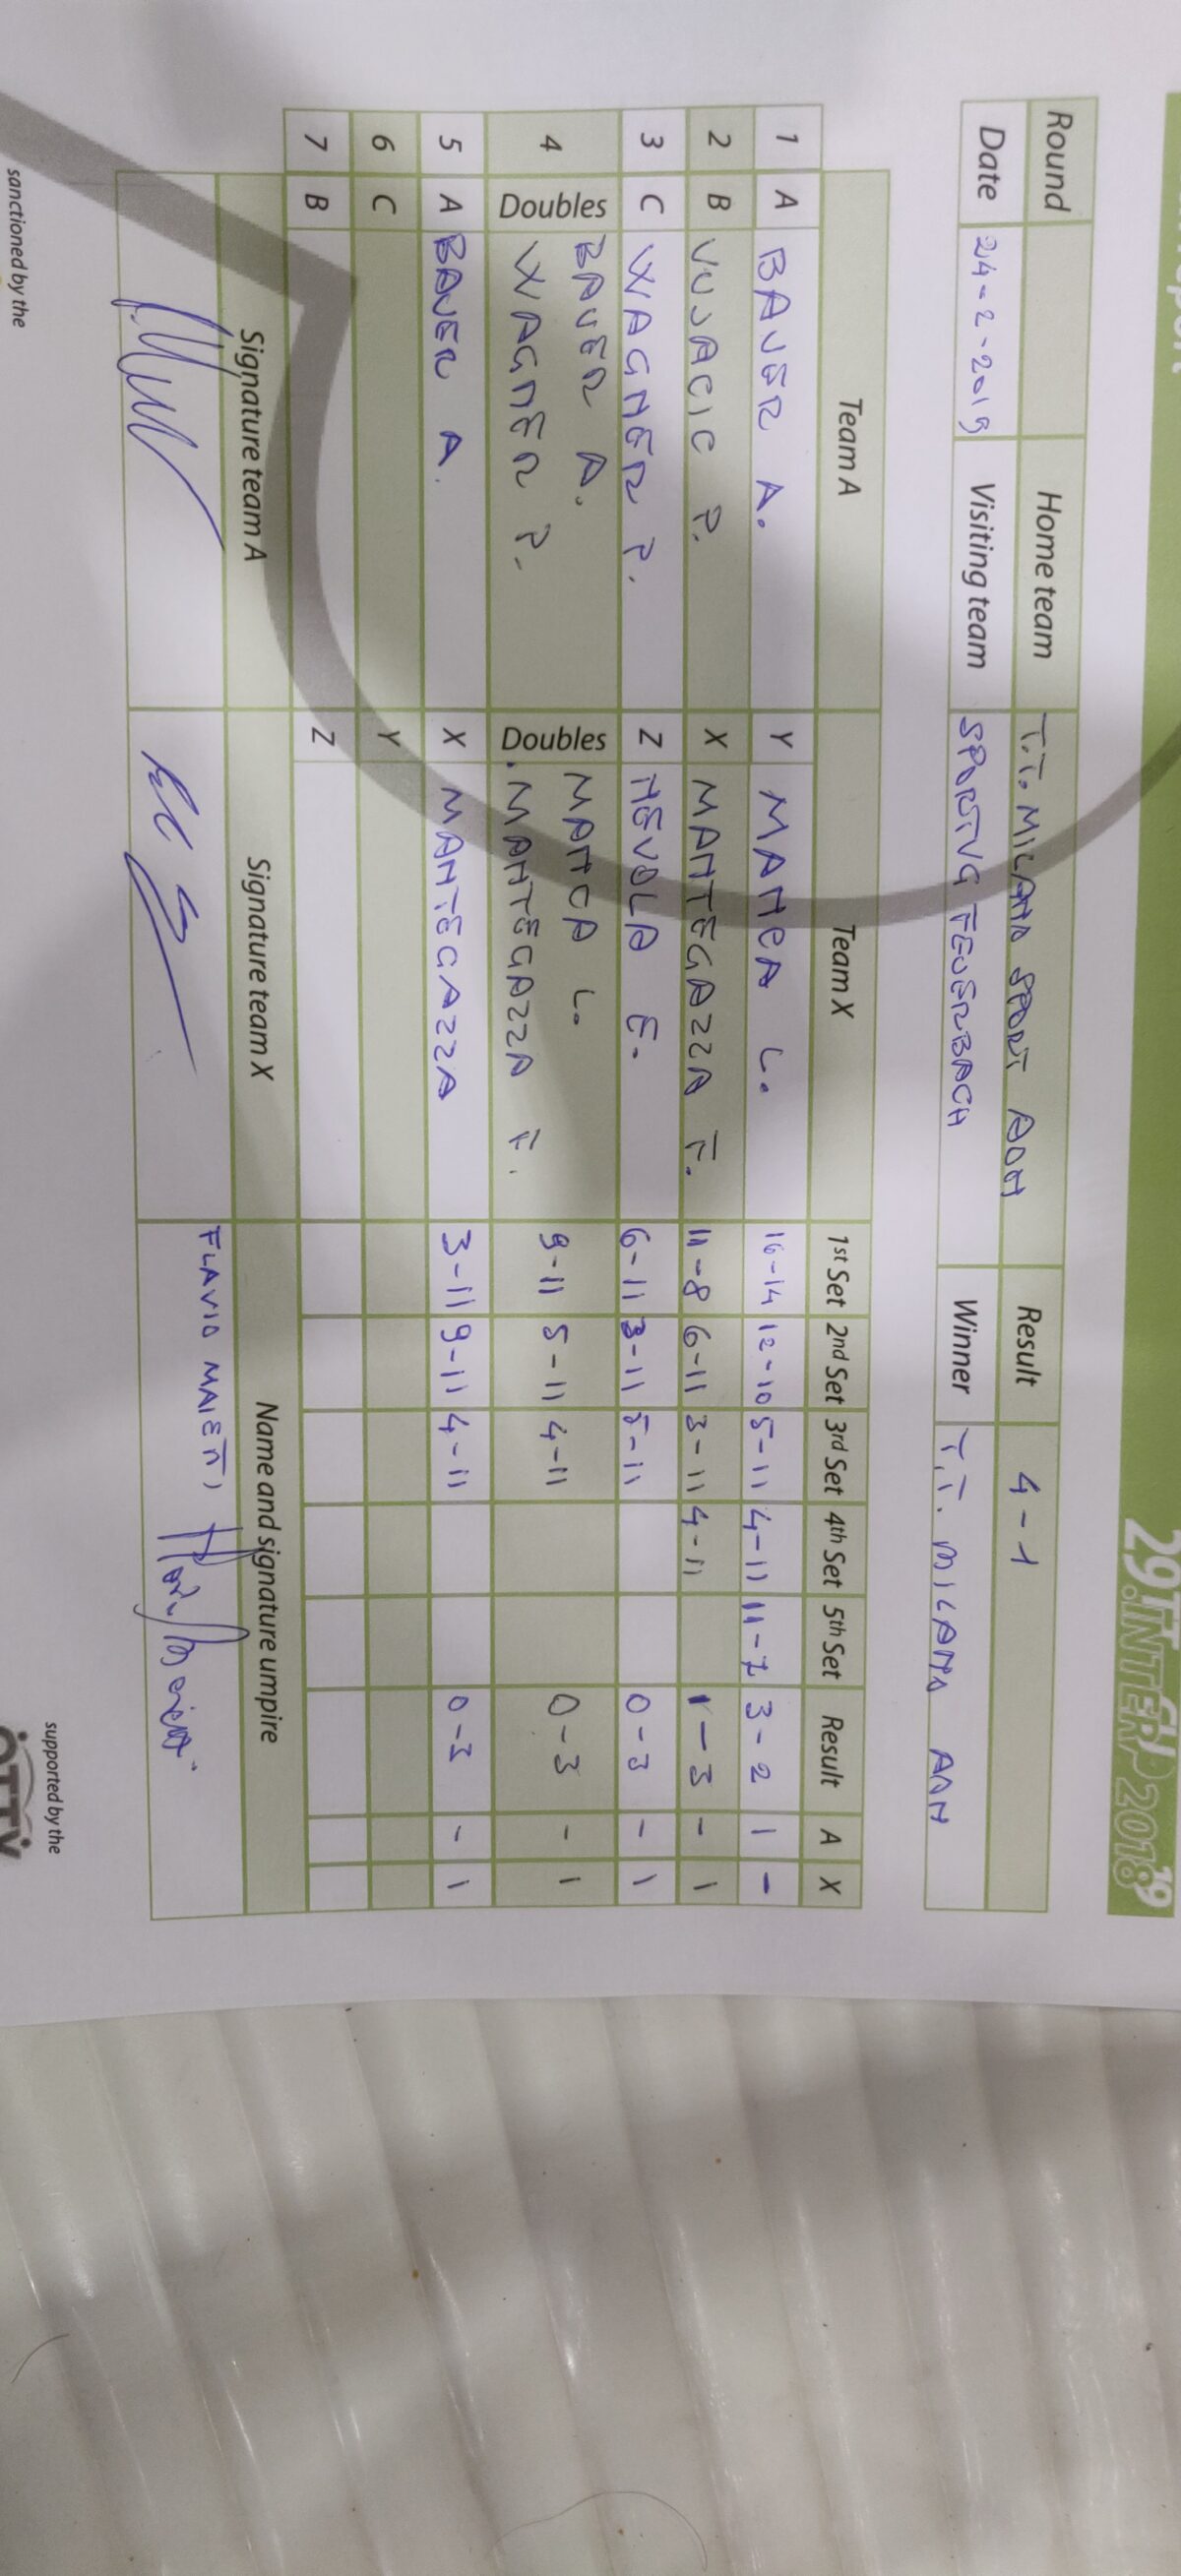 29. TT INTERCUP 2018 19
Round Home team T.T. MILANO SPORT ADN Result 4-1
Date 24-2-2019 Visiting team SPORTVG FEUERBACH Winner T.T. MILANO ADN
Team A Team X 1st Set 2nd Set 3rd Set 4th Set 5th Set Result A X
1 A BAUER A. Y MANCA L. 16-14 12-10 5-11 4-11 11-7 3-2 1 -
2 B VUJACIC P. X MANTEGAZZA F. 11-8 6-11 3-11 4-11 1-3 - 1
3 C WAGNER P. Z NEVOLA E. 6-11 3-11 5-11 0-3 - 1
4 Doubles BAUER A. Doubles MANCA L. 9-11 5-11 4-11 0-3 - 1
WAGNER P. MANTEGAZZA F.
5 A BAUER A. X MANTEGAZZA 3-11 9-11 4-11 0-3 - 1
6 C Y
7 B Z
Signature team A Signature team X Name and signature umpire
FLAVIO MAIETTI
sanctioned by the supported by the
ÖTTV